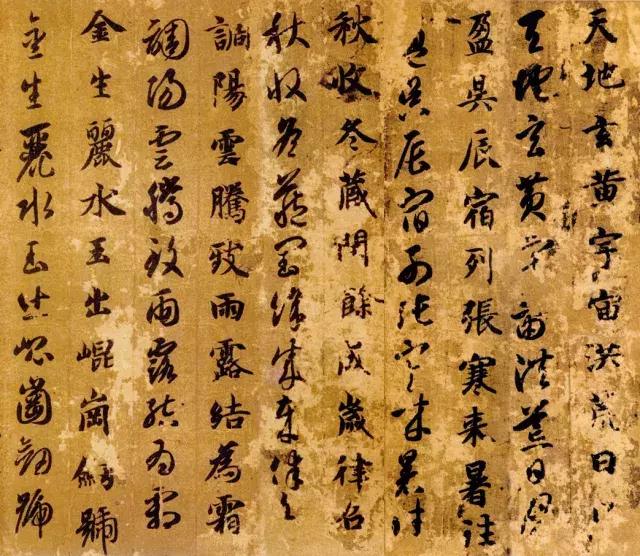 天地玄黄宇宙洪荒日
天地玄黄宇宙洪荒日月
盈昃辰宿列張寒来暑往
盈昃辰宿列張寒来暑往
秋收冬蔵閏餘成歲律吕
秋收冬蔵閏餘成歲律吕
調陽雲騰致雨露結為霜
調陽雲騰致雨露結為霜
金生麗水玉出崐崗劒號
金生麗水玉出崐崗劒號